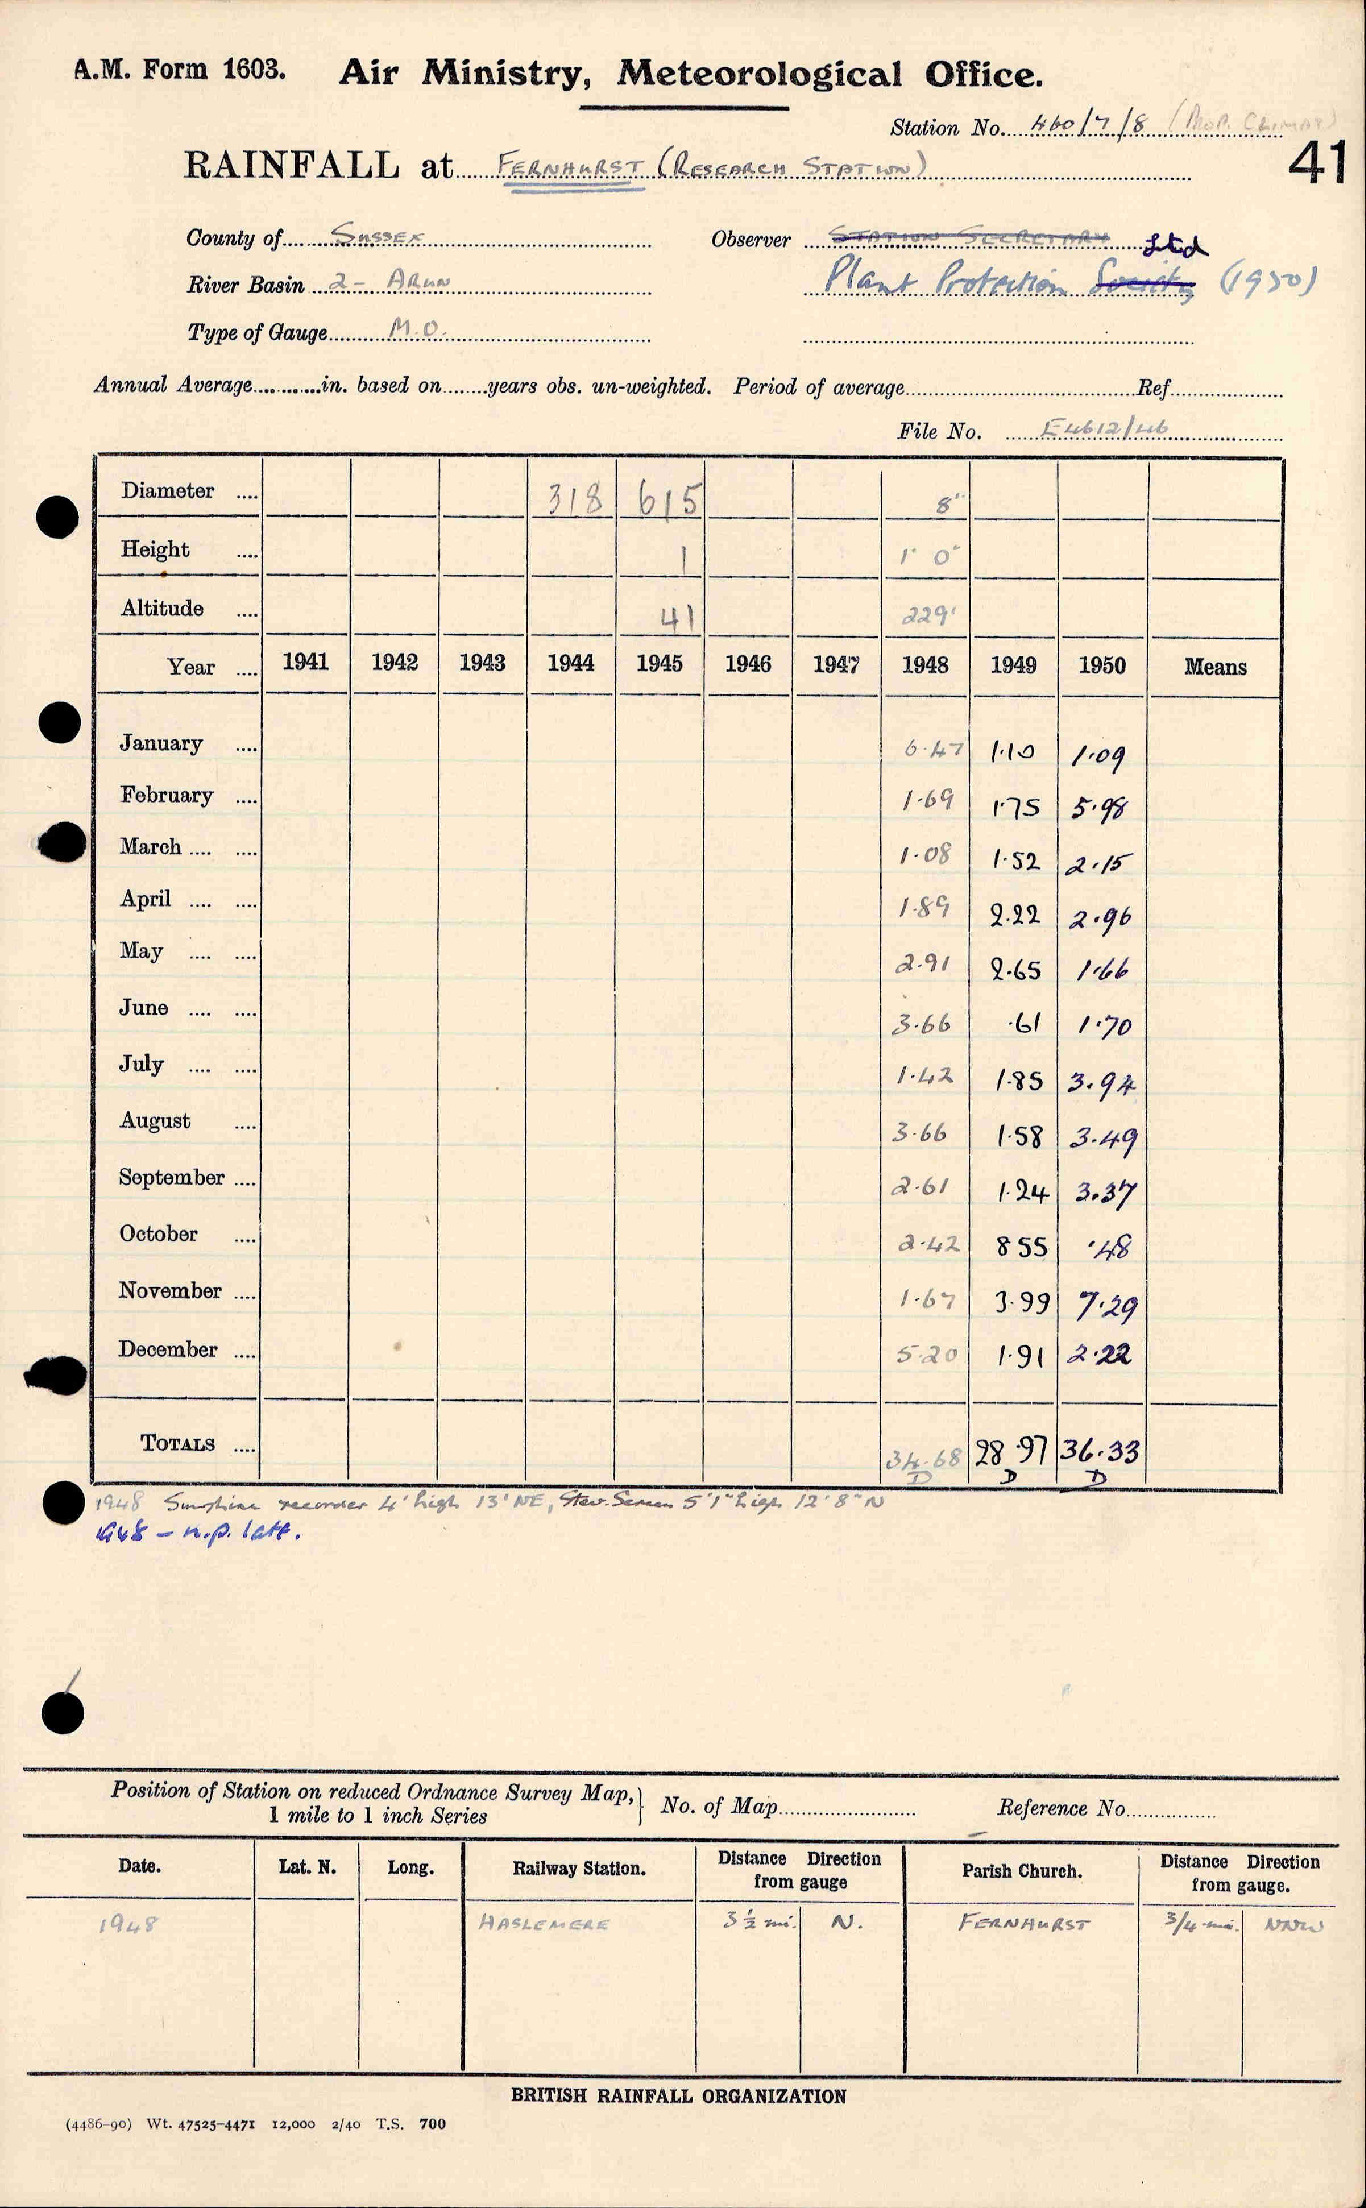 A.M. Form 1603. Air Ministry, Meteorological Office.
Station No. 460/7/8 (PROP. CLIMAT)
41
RAINFALL at FERNHURST (RESEARCH STATION)
County of SUSSEX Observer STATION SECRETARY Ltd
River Basin 2 - ARUN Plant Protection Society (1950)
Type of Gauge M.O.
Annual Average in. based on years obs. un-weighted. Period of average Ref
File No. E4612/46
Diameter .... 318 615 8"
Height .... 1 1' 0"
Altitude .... 41 229'
Year .... 1941 1942 1943 1944 1945 1946 1947 1948 1949 1950 Means
January .... 6.47 1.10 1.09
February .... 1.69 1.75 5.98
March .... .... 1.08 1.52 2.15
April .... .... 1.89 2.22 2.96
May .... .... 2.91 2.65 1.66
June .... .... 3.66 .61 1.70
July .... .... 1.42 1.85 3.94
August .... 3.66 1.58 3.49
September .... 2.61 1.24 3.37
October .... 2.42 8 55 .48
November .... 1.67 3.99 7.29
December .... 5.20 1.91 2.22
TOTALS .... 34.68 28.97 36.33
D D D
1948 Sunshine recorder 4' high 13' NE, Stev. Screen 5'1" high 12' 8" N
1948 - n.p. latt.
Position of Station on reduced Ordnance Survey Map, } No. of Map Reference No.
1 mile to 1 inch Series
Date. Lat. N. Long. Railway Station. Distance Direction from gauge Parish Church. Distance Direction from gauge.
1948 HASLEMERE 3½ mi. N. FERNHURST 3/4 mi. NNW
BRITISH RAINFALL ORGANIZATION
(4486-90) Wt. 47525-4471 12,000 2/40 T.S. 700